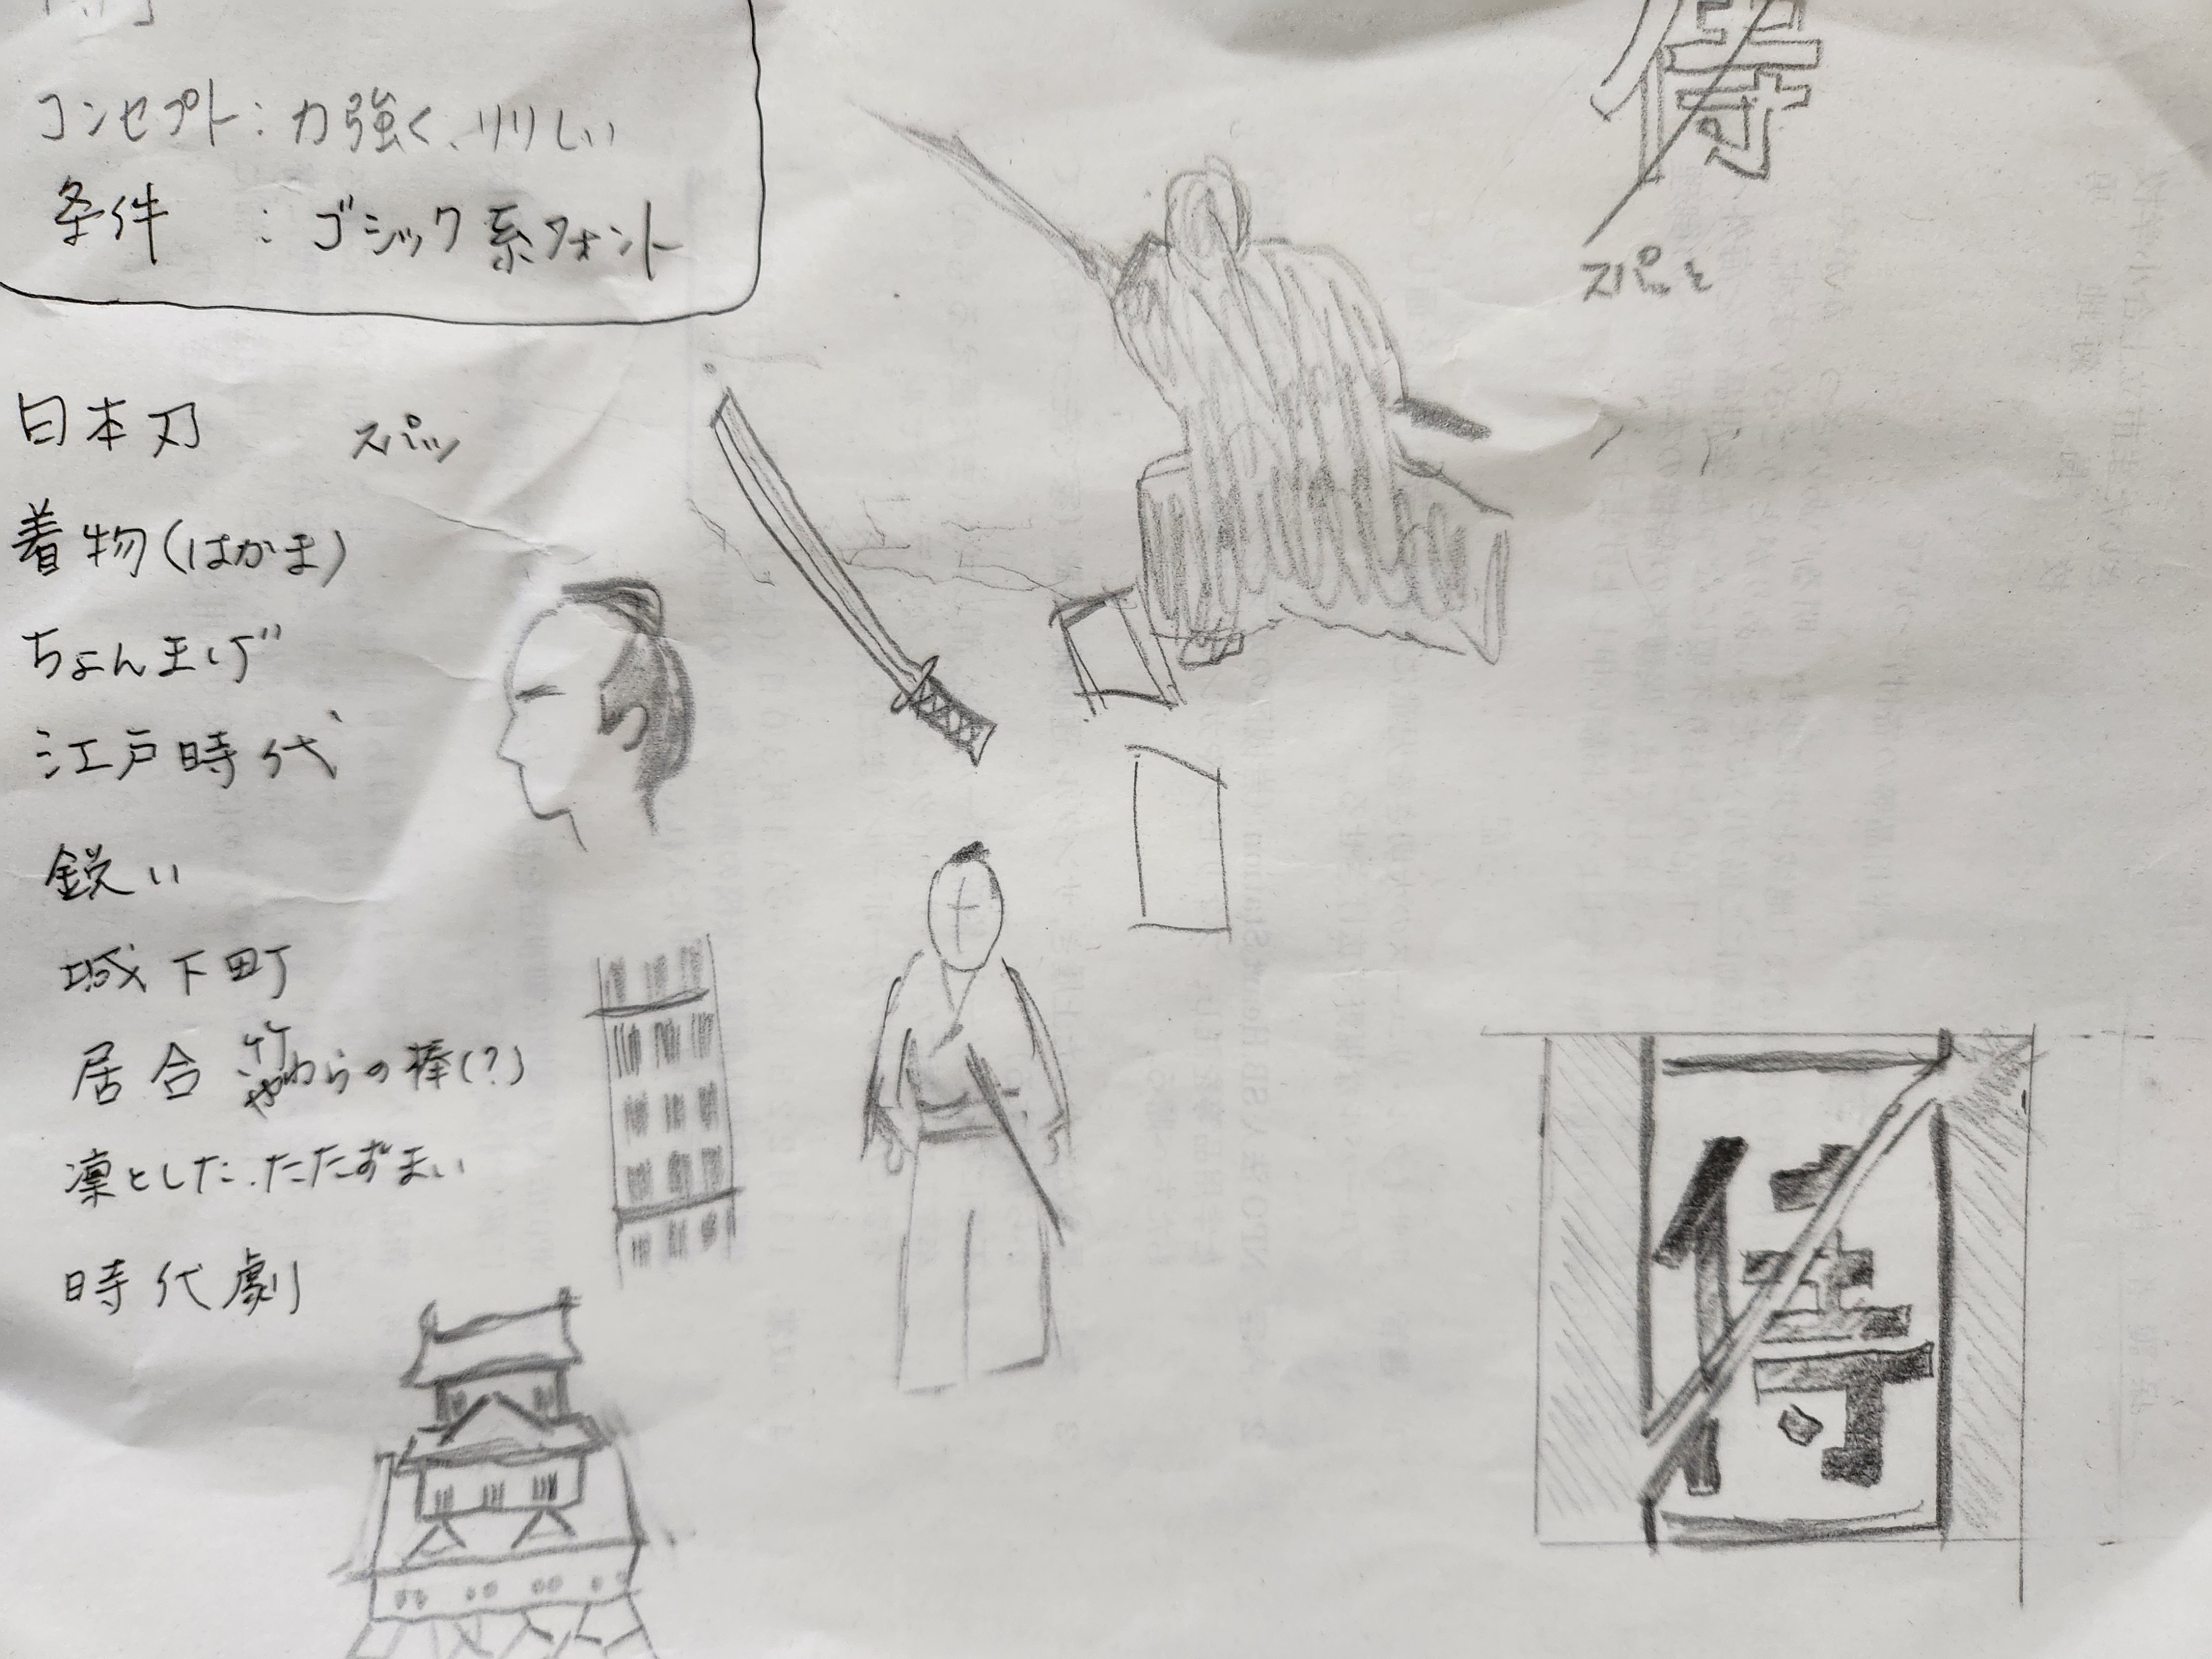 コンセプト:力強く、りりしい
条件 :ゴシック系フォント
侍
スパッと
日本刀 スパッ
着物(はかま)
ちょんまげ
江戸時代
鋭い
城下町
居合 竹やわらの棒(?)
凛とした、たたずまい
時代劇
侍